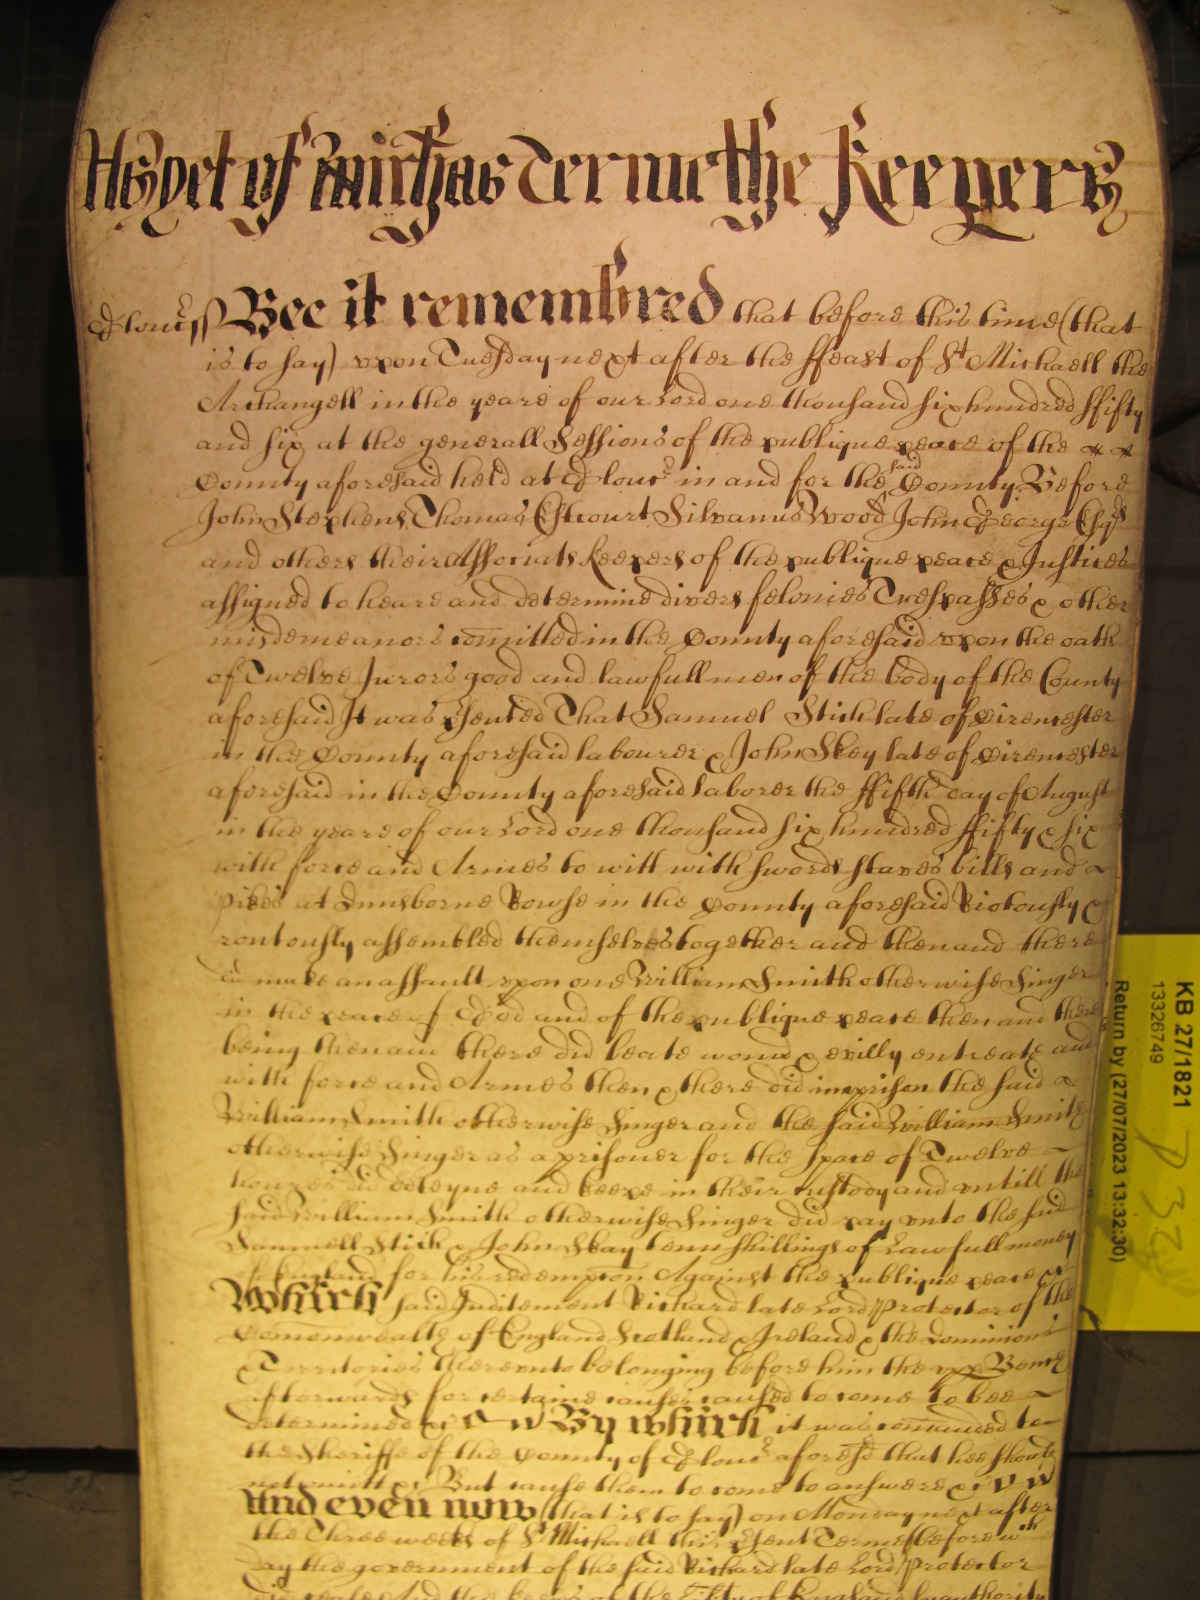 As yet of Mich'as Terme the Keepers
Glouc ss Bee it remembred that before this time (that
is to say) upon Tuesday next after the ffeast of St Michaell the
Archangell in the yeare of our Lord one thousand six hundred ffifty
and six at the generall Sessions of the publique peace of the
County aforesaid held at Glouc in and for the said County Before
John Stephens, Thomas Estcourt Silvanus Wood John George Esqrs
and others their Associats keepers of the publique peace & Justices
assigned to heare and determine divers felonies Trespasses & other
misdemeanors comitted in the County aforesaid upon the oath
of Twelve Jurors good and lawfull men of the body of the County
aforesaid It was psented That Samuel Stich late of Cirencester
in the County aforesaid labourer & John Skey late of Cirencester
aforesaid in the County aforesaid laborer the ffifth day of August
in the yeare of our Lord one thousand six hundred ffifty & six
with force and Armes to witt with swords staves bills and
pikes at Rowse in the County aforesaid Riotously &
routously assembled themselves together and then and there
did make an assault upon one William Smith otherwise Singer
in the peace of God and of the publique peace then and there
being then and there did beate wound & evilly entreate and
with force and Armes then & there did imprison the said
William Smith otherwise Singer and the said William Smith
otherwise Singer as a prisoner for the space of Twelve
houres did deteyne and keepe in their custody and untill the
said William Smith otherwise Singer did pay unto the said
Samuell Stich & John Skay tenn shillings of Lawfull money
of England for his redempcon Against the publique peace &c
Which said Inditement Richard late Lord Protector of the
Comonwealth of England Scotland & Ireland & the dominions
& Territories thereunto belonging before him the upp Bench
afterwards for certaine causes caused to come To bee
determined &c By which it was comanded to
the Sheriffe of the County of Glouc aforesd that hee should
not omitt &c But cause them to come to answere &c
And even now (that is to say) on Monday next after
the Three weeks of St Michaell this psent Terme (before wch
day the government of the said Richard late Lord Protector
And the keeps of the libty of England by authority
KB 27/1821
13326749
Return by (27/07/2023 13:32:30)